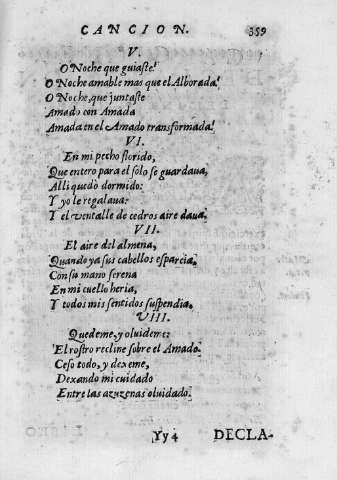 CANCION. 359
V.
O Noche que guiaste!
O Noche amable mas que el Alborada!
O Noche, que juntaste
Amado con Amada
Amada en el Amado transformada!
VI.
En mi pecho florido,
Que entero para el solo se guardaua,
Alli quedo dormido:
Y yo le regalaua:
Y el ventalle de cedros aire daua.
VII.
El aire del almena,
Quando ya sus cabellos esparcia,
Con su mano serena
En mi cuello heria,
Y todos mis sentidos suspendia.
VIII.
Quedeme, y oluideme:
El rostro recline sobre el Amado.
Ceso todo, y dexeme,
Dexando mi cuidado
Entre las azuzenas oluidado.
Yy 4 DECLA-